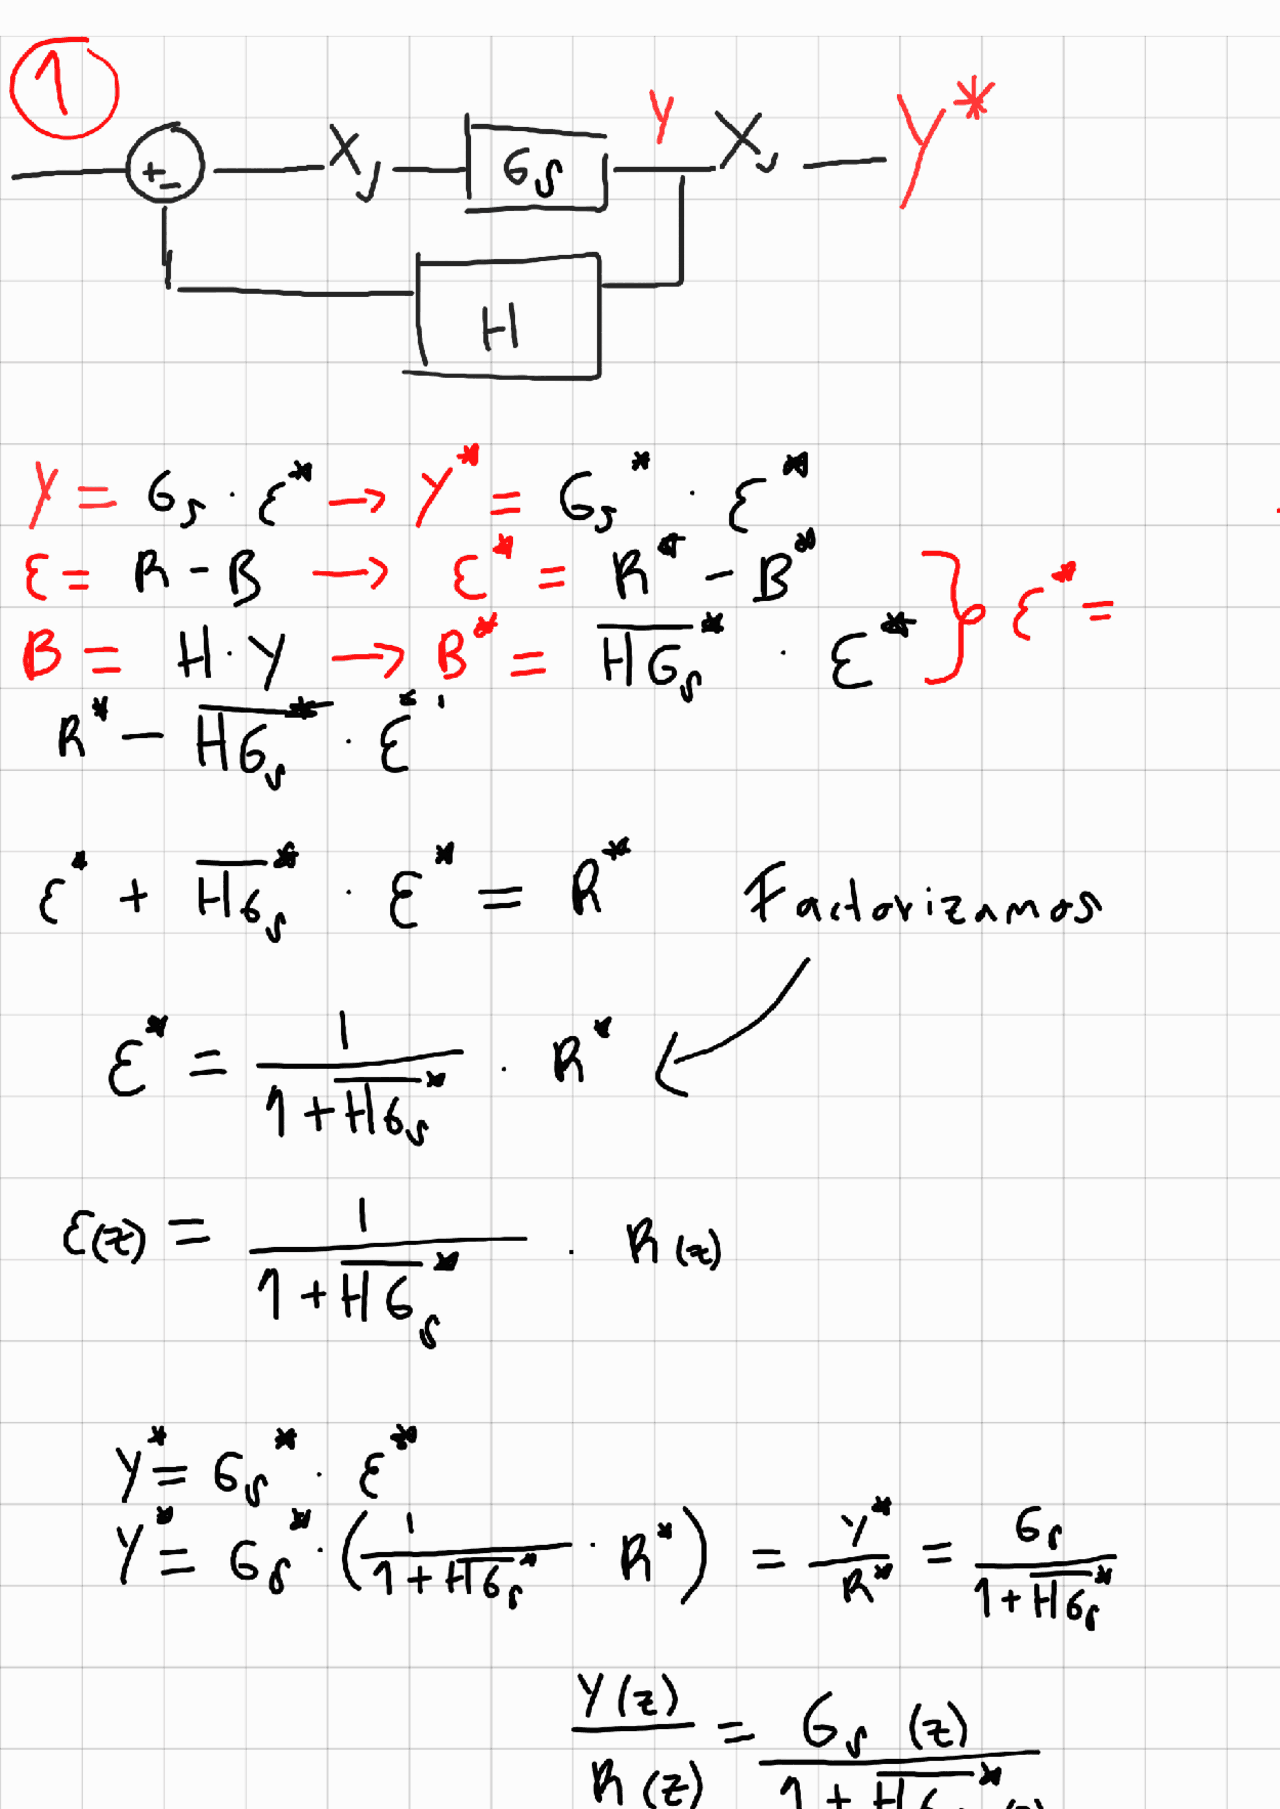 1
+ - X, Gs Y X, Y*
H
Y = Gs · ε* → Y* = Gs* · ε*
ε = R - B → ε* = R* - B*
B = H · Y → B* = \overline{HGs}* · ε* } ε* =
R* - \overline{HGs}* · ε*
ε* + \overline{HGs}* · ε* = R* Factorizamos
ε* = 1 / (1 + \overline{HGs}*) · R*
ε(z) = 1 / (1 + \overline{HGs}*) · R(z)
Y* = Gs* · ε*
Y* = Gs* · (1 / (1 + \overline{HGs}*) · R*) = Y* / R* = Gs / (1 + \overline{HGs}*)
Y(z) / R(z) = Gs(z) / (1 + \overline{HG}*